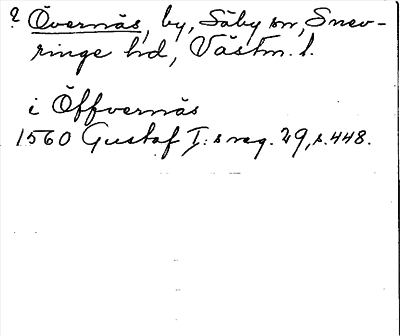 ? Övernäs, by, Säby sn, Snev-
ringe hd, Västm. l.
i Öffvernäs
1560 Gustaf I:s reg. 29, s. 448.